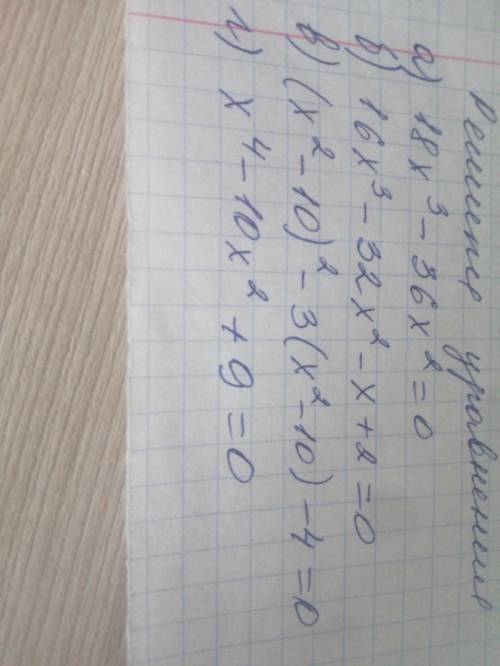 Решите уравнение
а) 18x³ - 36x² = 0
б) 16x³ - 32x² - x + 2 = 0
в) (x² - 10)² - 3(x² - 10) - 4 = 0
г) x⁴ - 10x² + 9 = 0